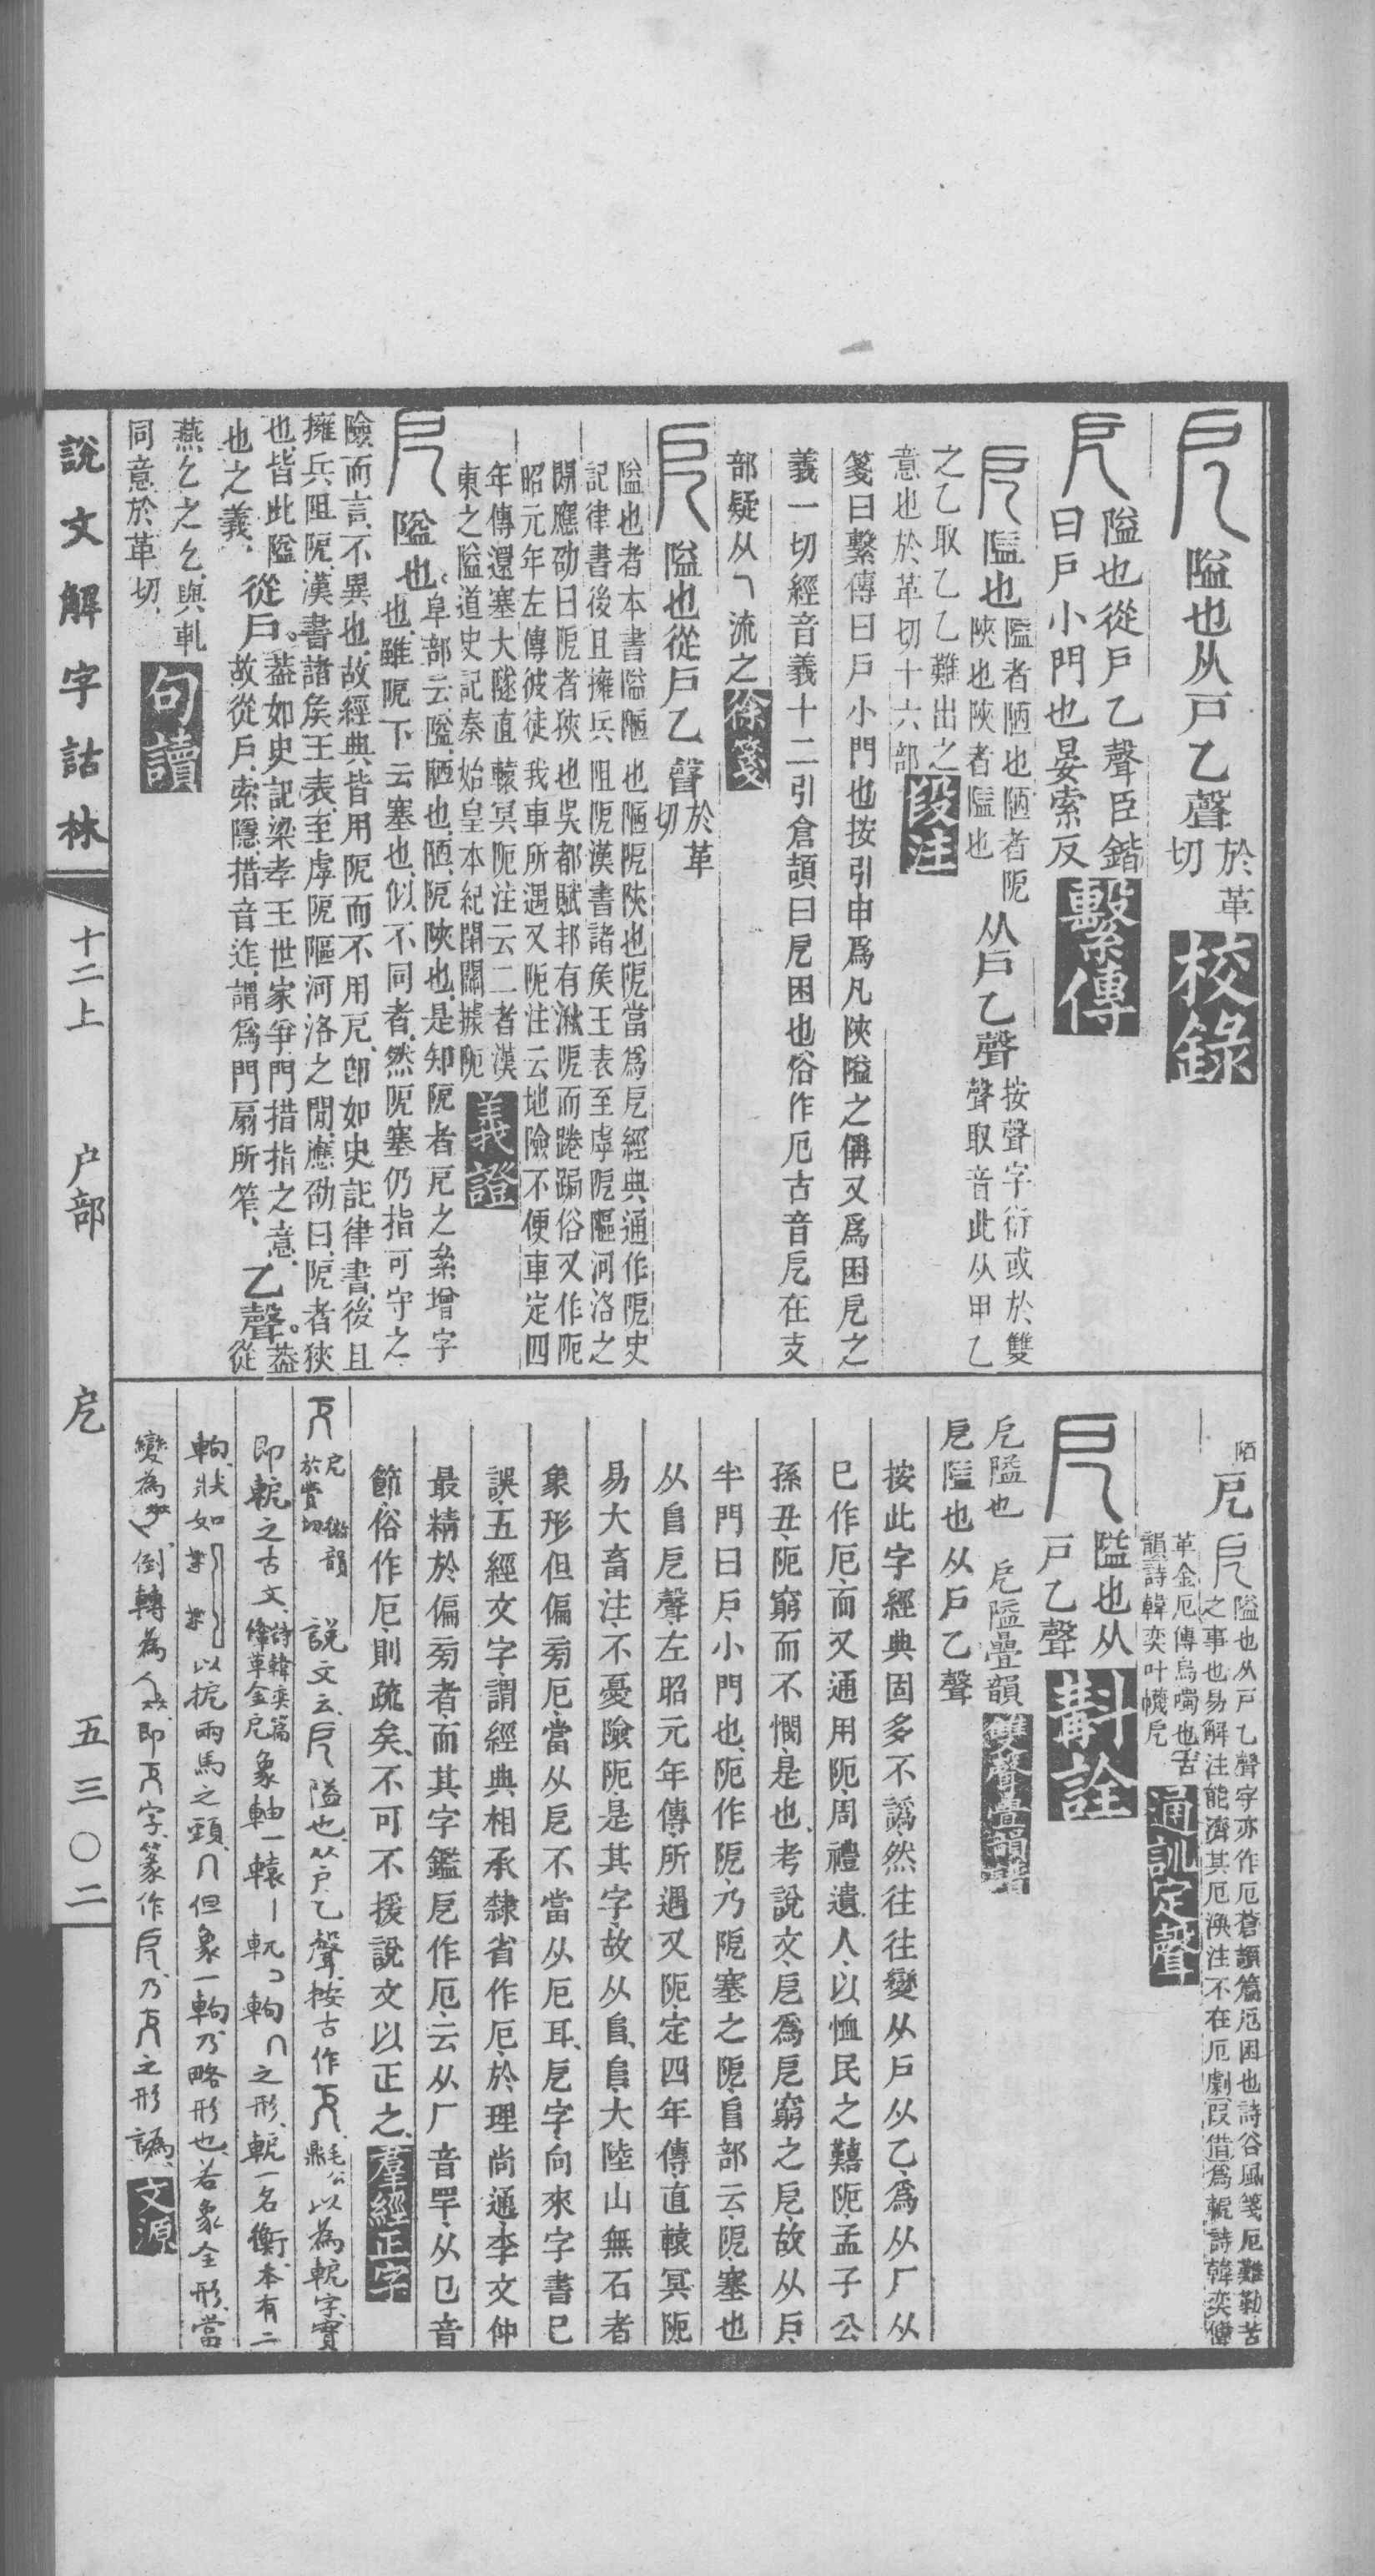 隘也从戶乙聲於革切 校錄
隘也從戶乙聲臣鍇
曰戶小門也晏索反 繫傳
𨻶也𨻶者陋也陋者阸陝也陝者𨻶也 从戶乙聲按聲字衍或於雙聲取音此从甲乙
之乙取乙乙難出之意也於革切十六部 段注
箋曰繫傳曰戶小門也按引申爲凡陝隘之偁又爲困戹之
義一切經音義十二引倉頡曰戹困也俗作厄古音戹在支
部疑从乁流之 徐箋
隘也從戶乙聲於革切
隘也者本書隘陋也陋阸陝也阸當爲戹經典通作阸史
記律書後且擁兵阻阸漢書諸矦王表至虖阸𨻳河洛之
閒應劭曰阸者狹也吳都賦邦有湫阸而踡跼俗又作阨
昭元年左傳彼徒我車所遇又阨注云地險不便車定四
年傳還塞大隧直轅冥阨注云二者漢
東之隘道史記秦始皇本紀閉關據阨 義證
隘也。阜部云隘、陋也、陋、阸陝也、是知阸者戹之絫增字
也、雖阸下云塞也、似不同者、然阸塞仍指可守之
險而言、不異也、故經典皆用阸而不用戹、卽如史記律書、後且
擁兵阻阸、漢書諸矦王表、至虖阸𨻳河洛之閒、應劭曰、阸者狹
也、皆此隘也之義、從戶。蓋如史記梁孝王世家爭門措指之意、
故從戶、索隱措音迮、謂爲門扇所笮、乙聲。蓋從
燕乞之乞、與軋
同意於革切、 句讀
說文解字詁林 十二上 戶部 戹 五三〇二
陌 戹 隘也从戶乙聲字亦作厄蒼頡篇厄困也詩谷風箋厄難勤苦
之事也易解注能濟其厄渙注不在厄劇叚借爲軶詩韓奕傳
革金厄傳烏噣也古
韻詩韓奕叶幭戹 通訓定聲
隘也从
戶乙聲 斠詮
戹隘也 戹隘疊韻 雙聲疊韻譜
戹𨻶也从戶乙聲
按此字經典固多不譌、然往往變从戶从乙、爲从厂从
㔾作厄、而又通用阨、周禮遺人、以恤民之囏阨、孟子公
孫丑、阨窮而不憫、是也、考說文、戹爲戹窮之戹、故从戶、
半門曰戶、小門也、阨作阸、乃阸塞之阸、𨸏部云、阸、塞也
从𨸏戹聲、左昭元年傳、所遇又阨、定四年傳、直轅冥阨、
易大畜注、不憂險阨、是其字、故从𨸏、𨸏、大陸山無石者
象形、但偏旁厄、當从戹不當从厄耳、戹字、向來字書已
誤、五經文字、謂經典相承隸省作厄、於理尚通、李文仲
最精於偏旁者、而其字鑑戹作厄、云从厂音罕、从㔾音
節、俗作厄、則疏矣、不可不援說文以正之、 羣經正字
戹於賣切 說文云、隘也、从戶乙聲、按古作毛公鼎以為軶字、實
即軶之古文、詩韓奕篇鞗革金戹象軸一轅丨軏軥之形、軶一名衡、本有二
軥、狀如以扼兩馬之頸、但象一軥、乃略形也、若象全形、當
變為倒轉為即字、篆作乃之形譌、 文源